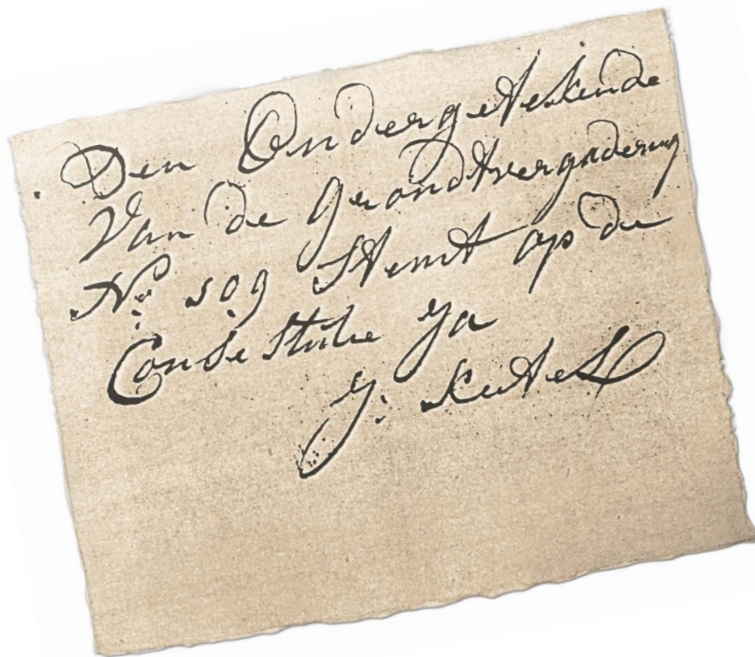 Den Ondergeteekende
Van de Grondtvergadering
No 509 Stemt op de
Conse Stutie Ja
J: Ketel